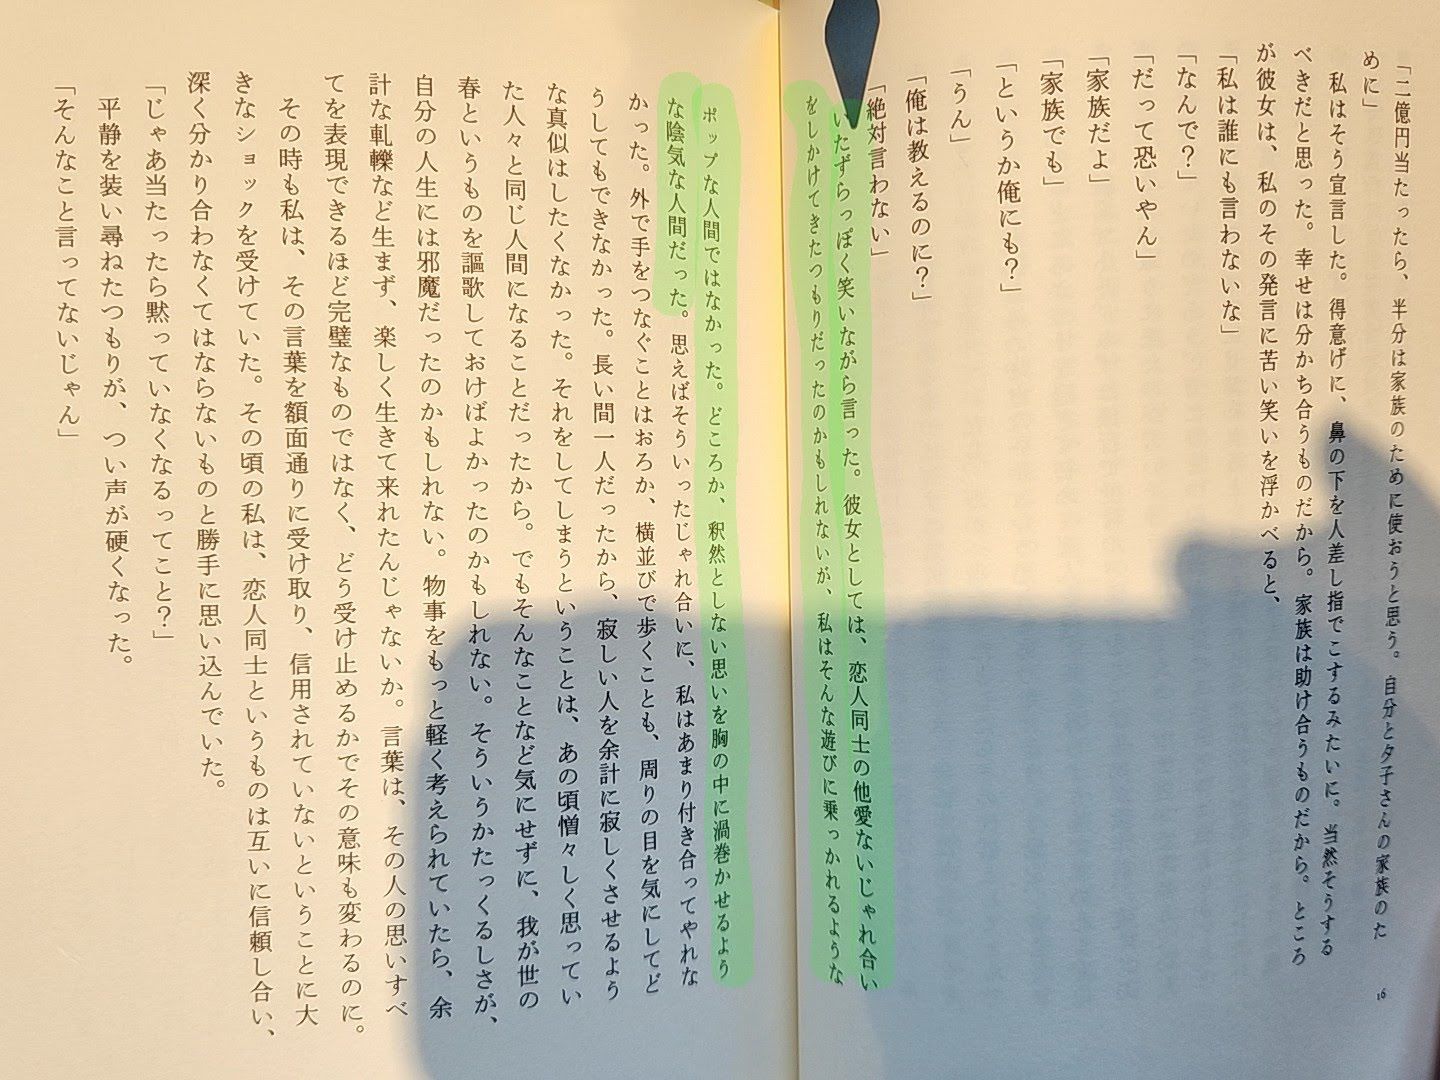 「二億円当たったら、半分は家族のために使おうと思う。自分と夕子さんの家族のた
めに」
私はそう宣言した。得意げに、鼻の下を人差し指でこするみたいに。当然そうする
べきだと思った。幸せは分かち合うものだから。家族は助け合うものだから。ところ
が彼女は、私のその発言に苦い笑いを浮かべると、
「私は誰にも言わないな」
「なんで？」
「だって恐いやん」
「家族だよ」
「家族でも」
「というか俺にも？」
「うん」
「俺は教えるのに？」
「絶対言わない」
いたずらっぽく笑いながら言った。彼女としては、恋人同士の他愛ないじゃれ合い
をしかけてきたつもりだったのかもしれないが、私はそんな遊びに乗っかれるような
16
ポップな人間ではなかった。どころか、釈然としない思いを胸の中に渦巻かせるよう
な陰気な人間だった。思えばそういったじゃれ合いに、私はあまり付き合ってやれな
かった。外で手をつなぐことはおろか、横並びで歩くことも、周りの目を気にしてど
うしてもできなかった。長い間一人だったから、寂しい人を余計に寂しくさせるよう
な真似はしたくなかった。それをしてしまうということは、あの頃憎々しく思ってい
た人々と同じ人間になることだったから。でもそんなことなど気にせずに、我が世の
春というものを謳歌しておけばよかったのかもしれない。そういうかたっくるしさが、
自分の人生には邪魔だったのかもしれない。物事をもっと軽く考えられていたら、余
計な軋轢など生まず、楽しく生きて来れたんじゃないか。言葉は、その人の思いすべ
てを表現できるほど完璧なものではなく、どう受け止めるかでその意味も変わるのに。
その時も私は、その言葉を額面通りに受け取り、信用されていないということに大
きなショックを受けていた。その頃の私は、恋人同士というものは互いに信頼し合い、
深く分かり合わなくてはならないものと勝手に思い込んでいた。
「じゃあ当たったら黙っていなくなるってこと？」
平静を装い尋ねたつもりが、つい声が硬くなった。
「そんなこと言ってないじゃん」